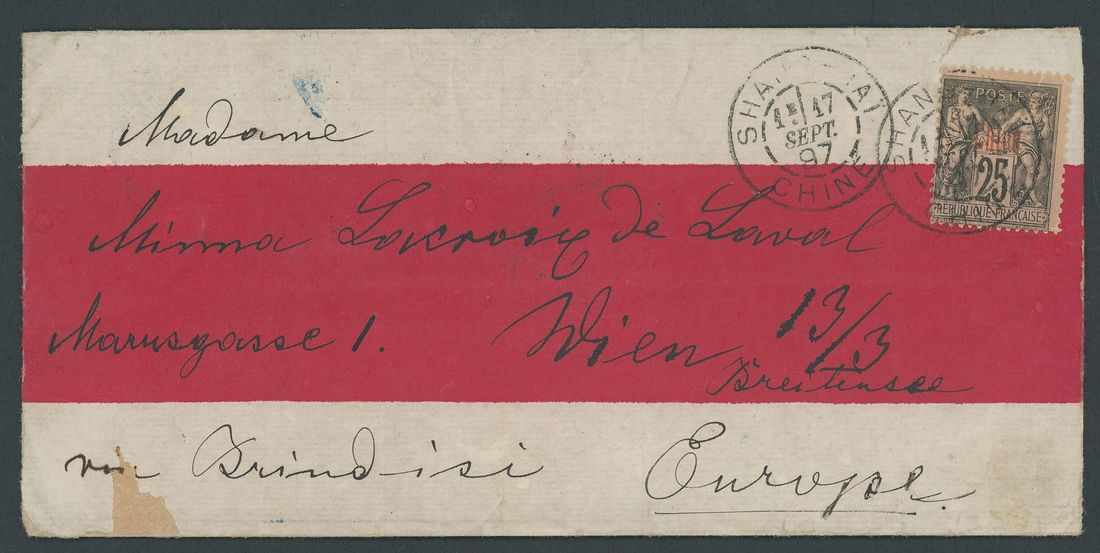 Madame
SHANG-HAI
1E 17
SEPT.
97
CHINE
SHAN
POSTE
Chine
25
REPUBLIQUE FRANÇAISE
Minna Lacroix de Laval
Marusgasse 1. Wien 13/3
Breitensee
via Brindisi Europe.